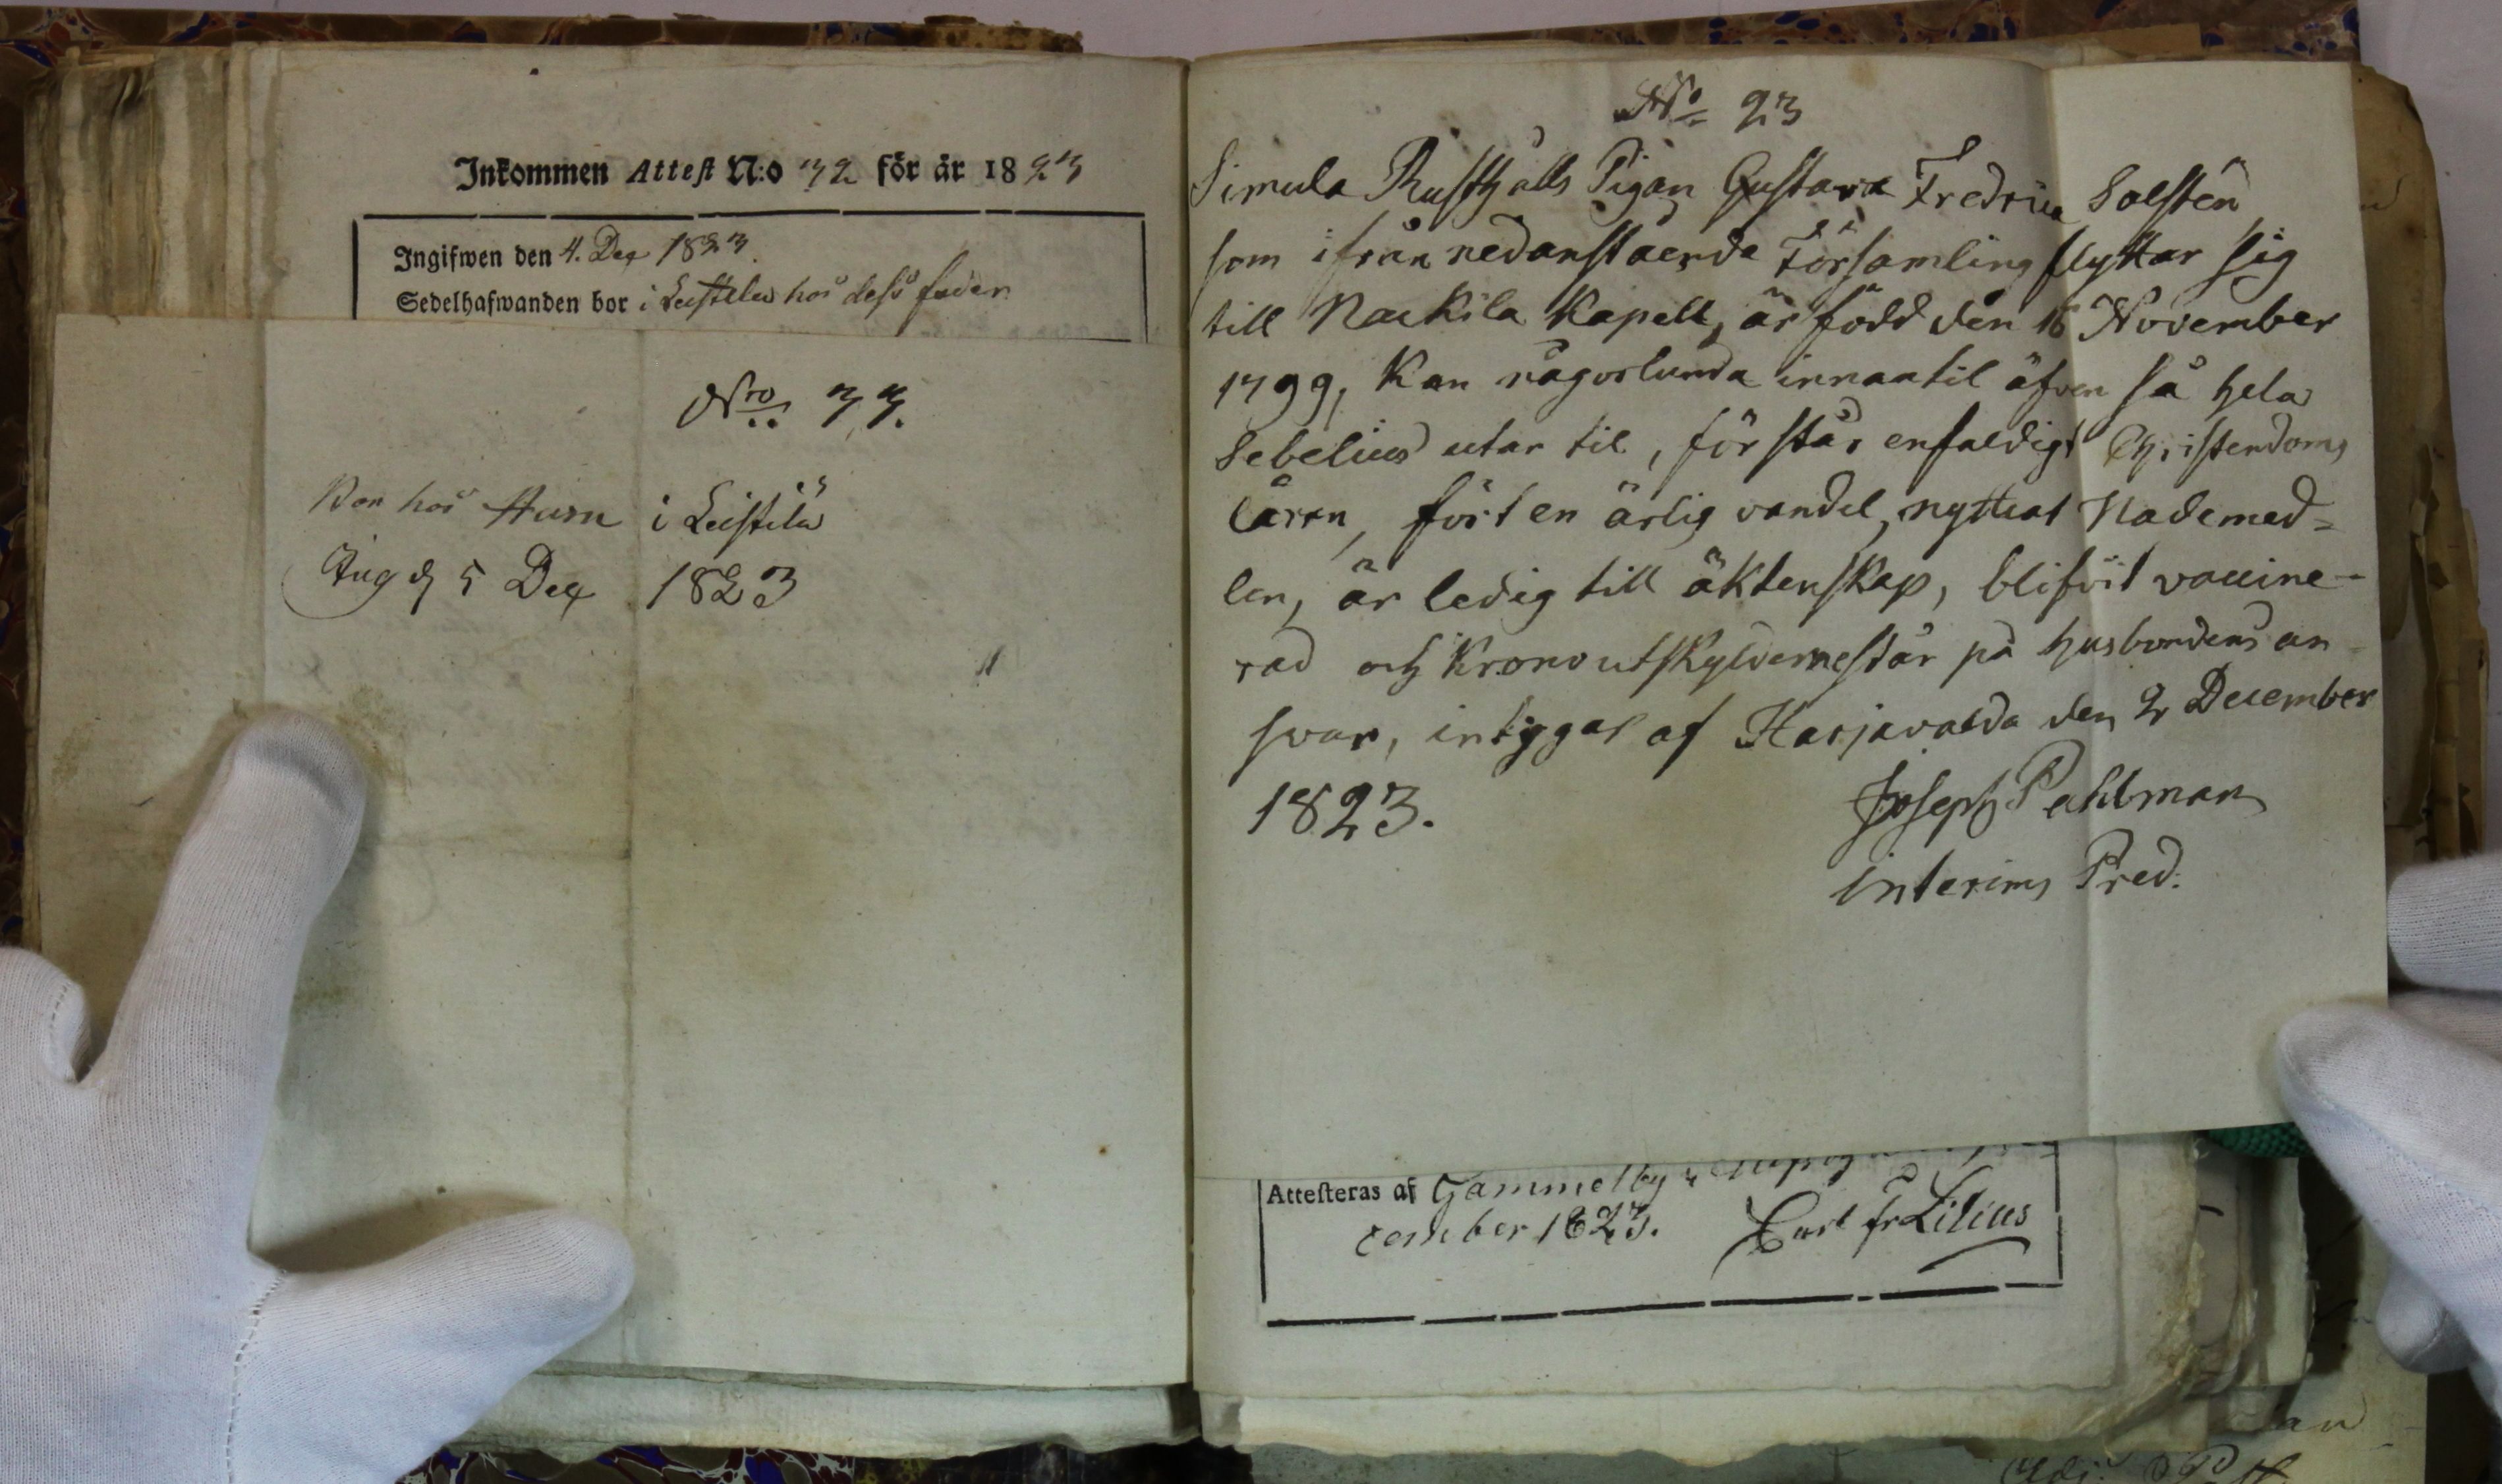 Inkommen Attest N:o 32 för år 1823
Ingifwen den 4. Dec 1823.
Sedelhafwanden bor i Leistela hos dess fader
Nro 33.
Bor hos Hurn i Leistilä
Ing d 5 Dec 1823
No 23
Simula Rusthålls Pigan Gustava Fredrica Solsten
som ifrån nedanstående Församling flyttar sig
till Nackila Kapell, är född den 16 November
1799, Kan någorlunda innantil äfven så hela
Sebelius utan til, förstår enfaldigt Christendoms
läran, fört en ärlig vandel, nyttiat Nademed=
len, är ledig till äktenskap, blifvit vaccine-
rad och Krono utskylderne står på husbondens an=
svar, intygas af Harjavalda den 2 December
1823.
Joseph Pahlman
Interims Pred.
Attesteras af Gammelby
cember 1823. Carl Fr Lilius